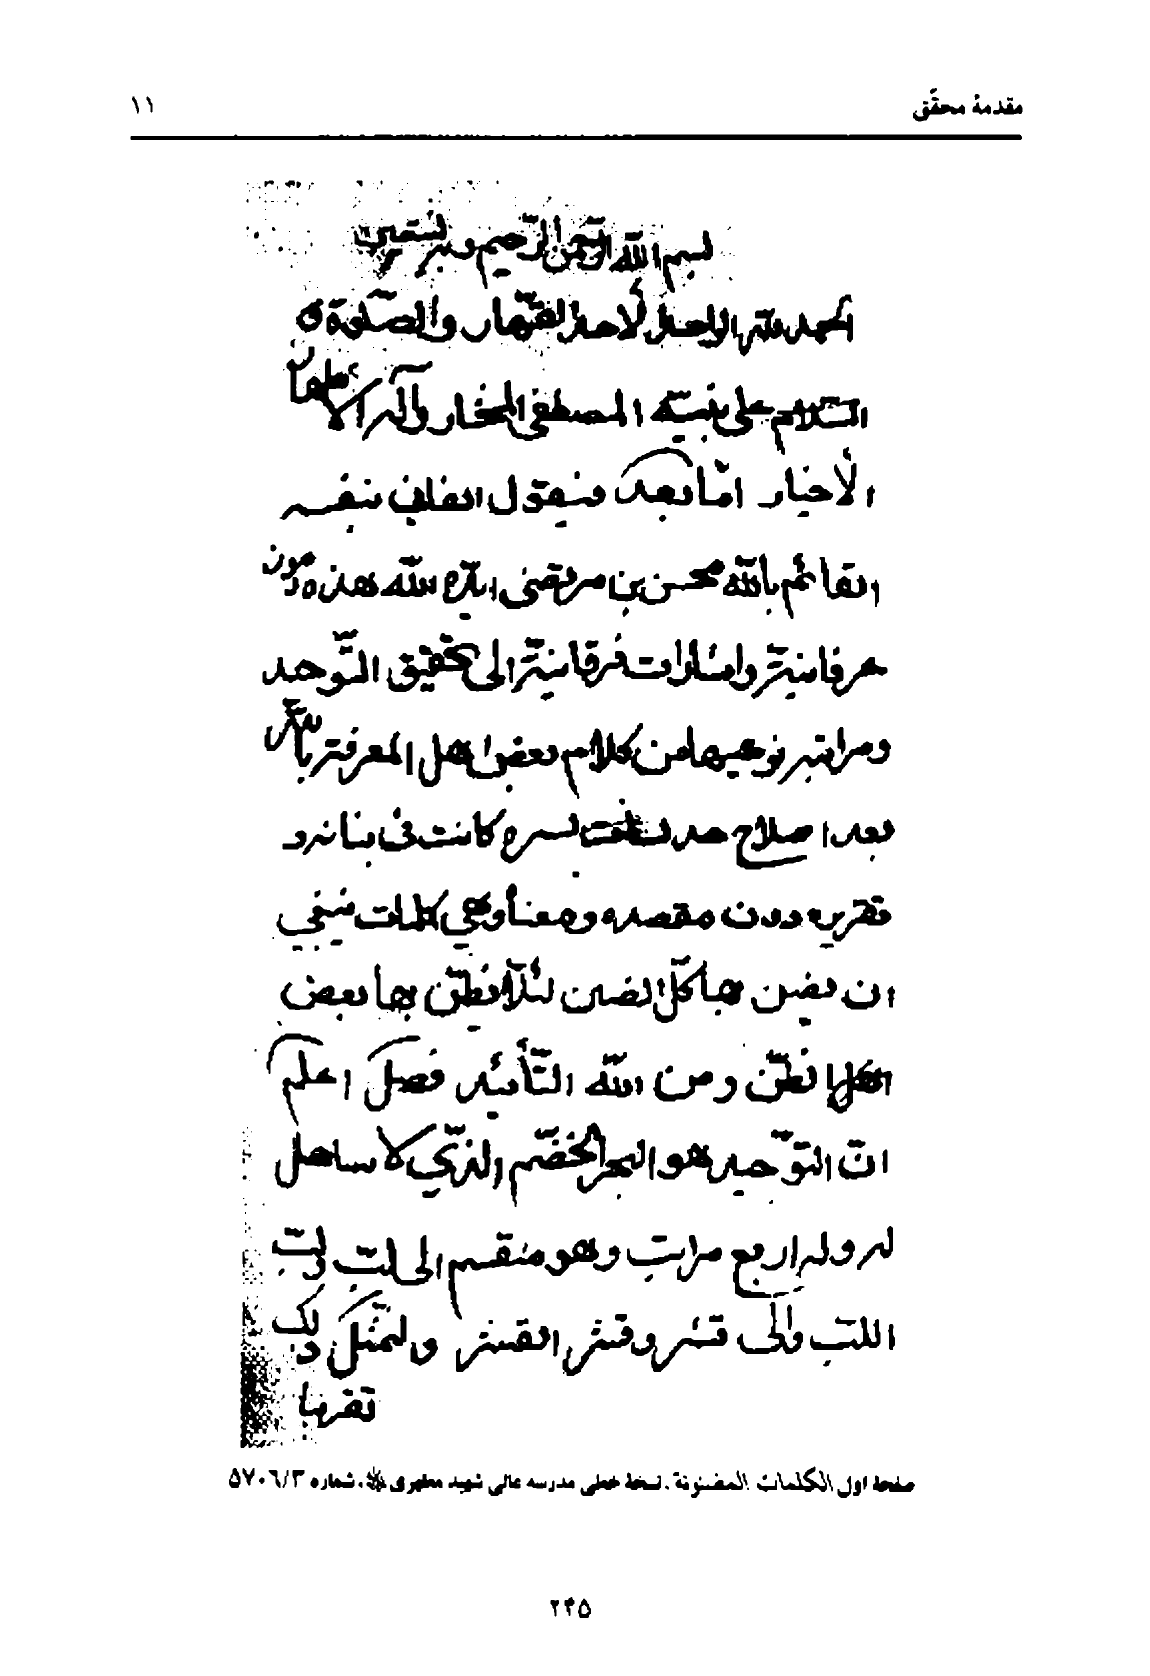 مقدمهٔ محقّق ۱۱
بسم الله الرّحمن الرّحيم وبه نستعين
الحمد لله الواحد الأحد القهّار والصّلوة و
السّلام على نبيّه المصطفى المختار وآله الأطهار
الأخيار امّا بعد فيقول الفانى بنفسه
القائم بالله محسن بن مرتضى ايّده الله هذه رموز
عرفانيّة واشارات فرقانيّة الى تحقيق التّوحيد
ومراتبه نوحيها من كلام بعض اهل المعرفة بالله
بعد اصلاح كانت فى بيانه و
تقريره دون مقصده ومعناه وهى كلمات ينبغى
ان يضنّ بها كلّ الضن لئلّا يظنّ بها بعض
نظنّ ومن الله التّأييد فصل اعلم
انّ التّوحيد هو البحر الخضّم الذّي لا ساحل
له وله اربع مراتب وهو منقسم الى لبّ ولبّ
اللبّ والى قشر وقشر القشر ولنمثّل ذلك
تقريبا
صفحهٔ اول الكلمات المضنونة، نسخهٔ خطى مدرسه عالى شهيد مطهرى، شماره ۵۷۰۶/۳
۲۴۵